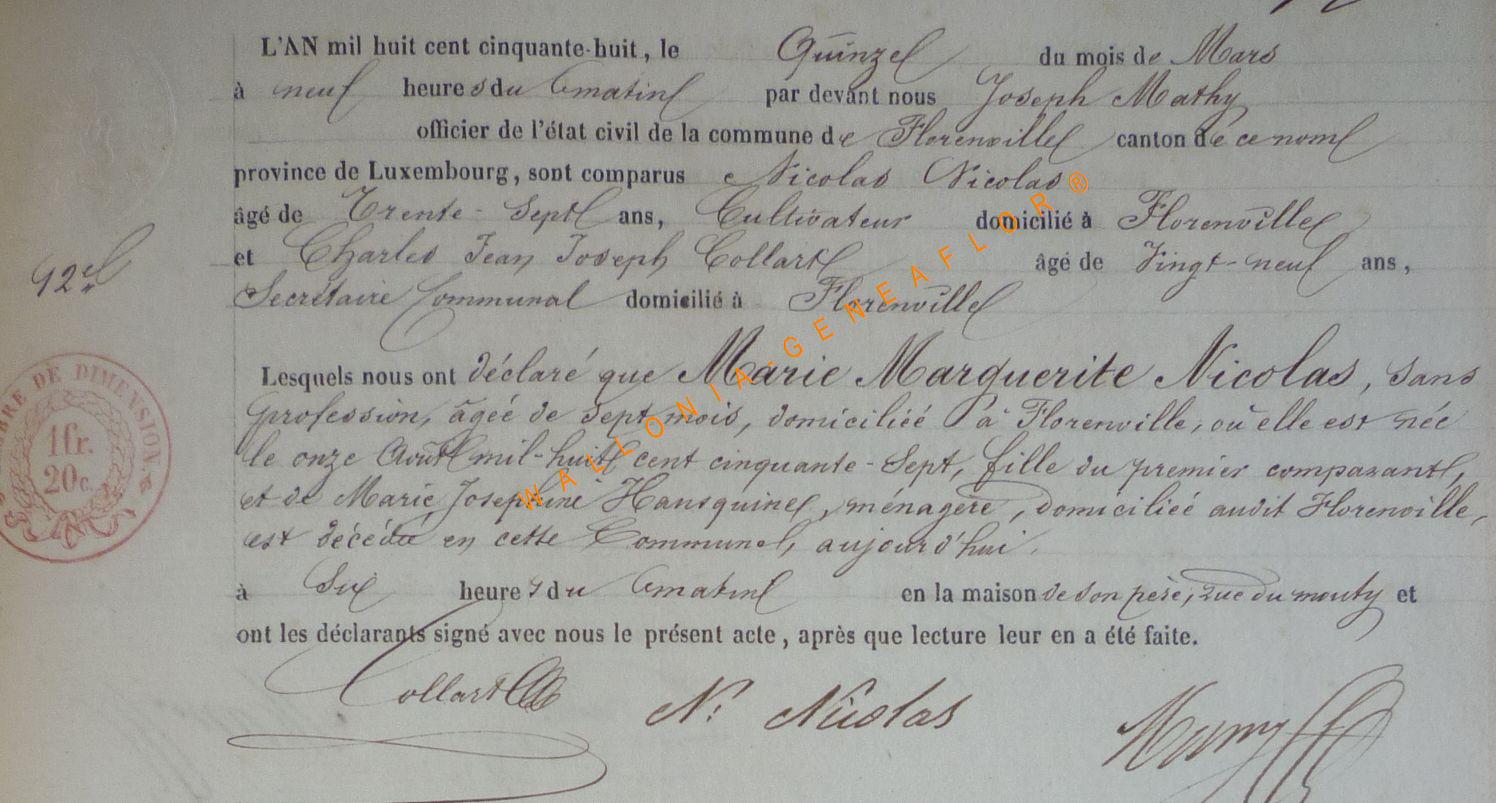 L'AN mil huit cent cinquante-huit, le Quinze du mois de Mars
à neuf heures du matin par devant nous Joseph Mathy
officier de l'état civil de la commune de Florenville canton de ce nom
province de Luxembourg, sont comparus Nicolas Nicolas
âgé de Trente-Sept ans, Cultivateur domicilié à Florenville
et Charles Jean Joseph Collart âgé de Vingt-neuf ans,
12e
Secrétaire Communal domicilié à Florenville
Lesquels nous ont déclaré que Marie Marguerite Nicolas, sans
profession, âgée de sept mois, domiciliée à Florenville, où elle est née
le onze Août mil-huit cent cinquante-Sept, fille du premier comparant,
et de Marie Josephine Hansquine, ménagère, domiciliée audit Florenville,
est décédée en cette Commune, aujourd'hui.
à Six heures du matin en la maison de son père, rue du mouty et
ont les déclarants signé avec nous le présent acte, après que lecture leur en a été faite.
Collart N. Nicolas
TIMBRE DE DIMENSION.
1fr.
20c.
WALLONIA-GENEAFLOR®